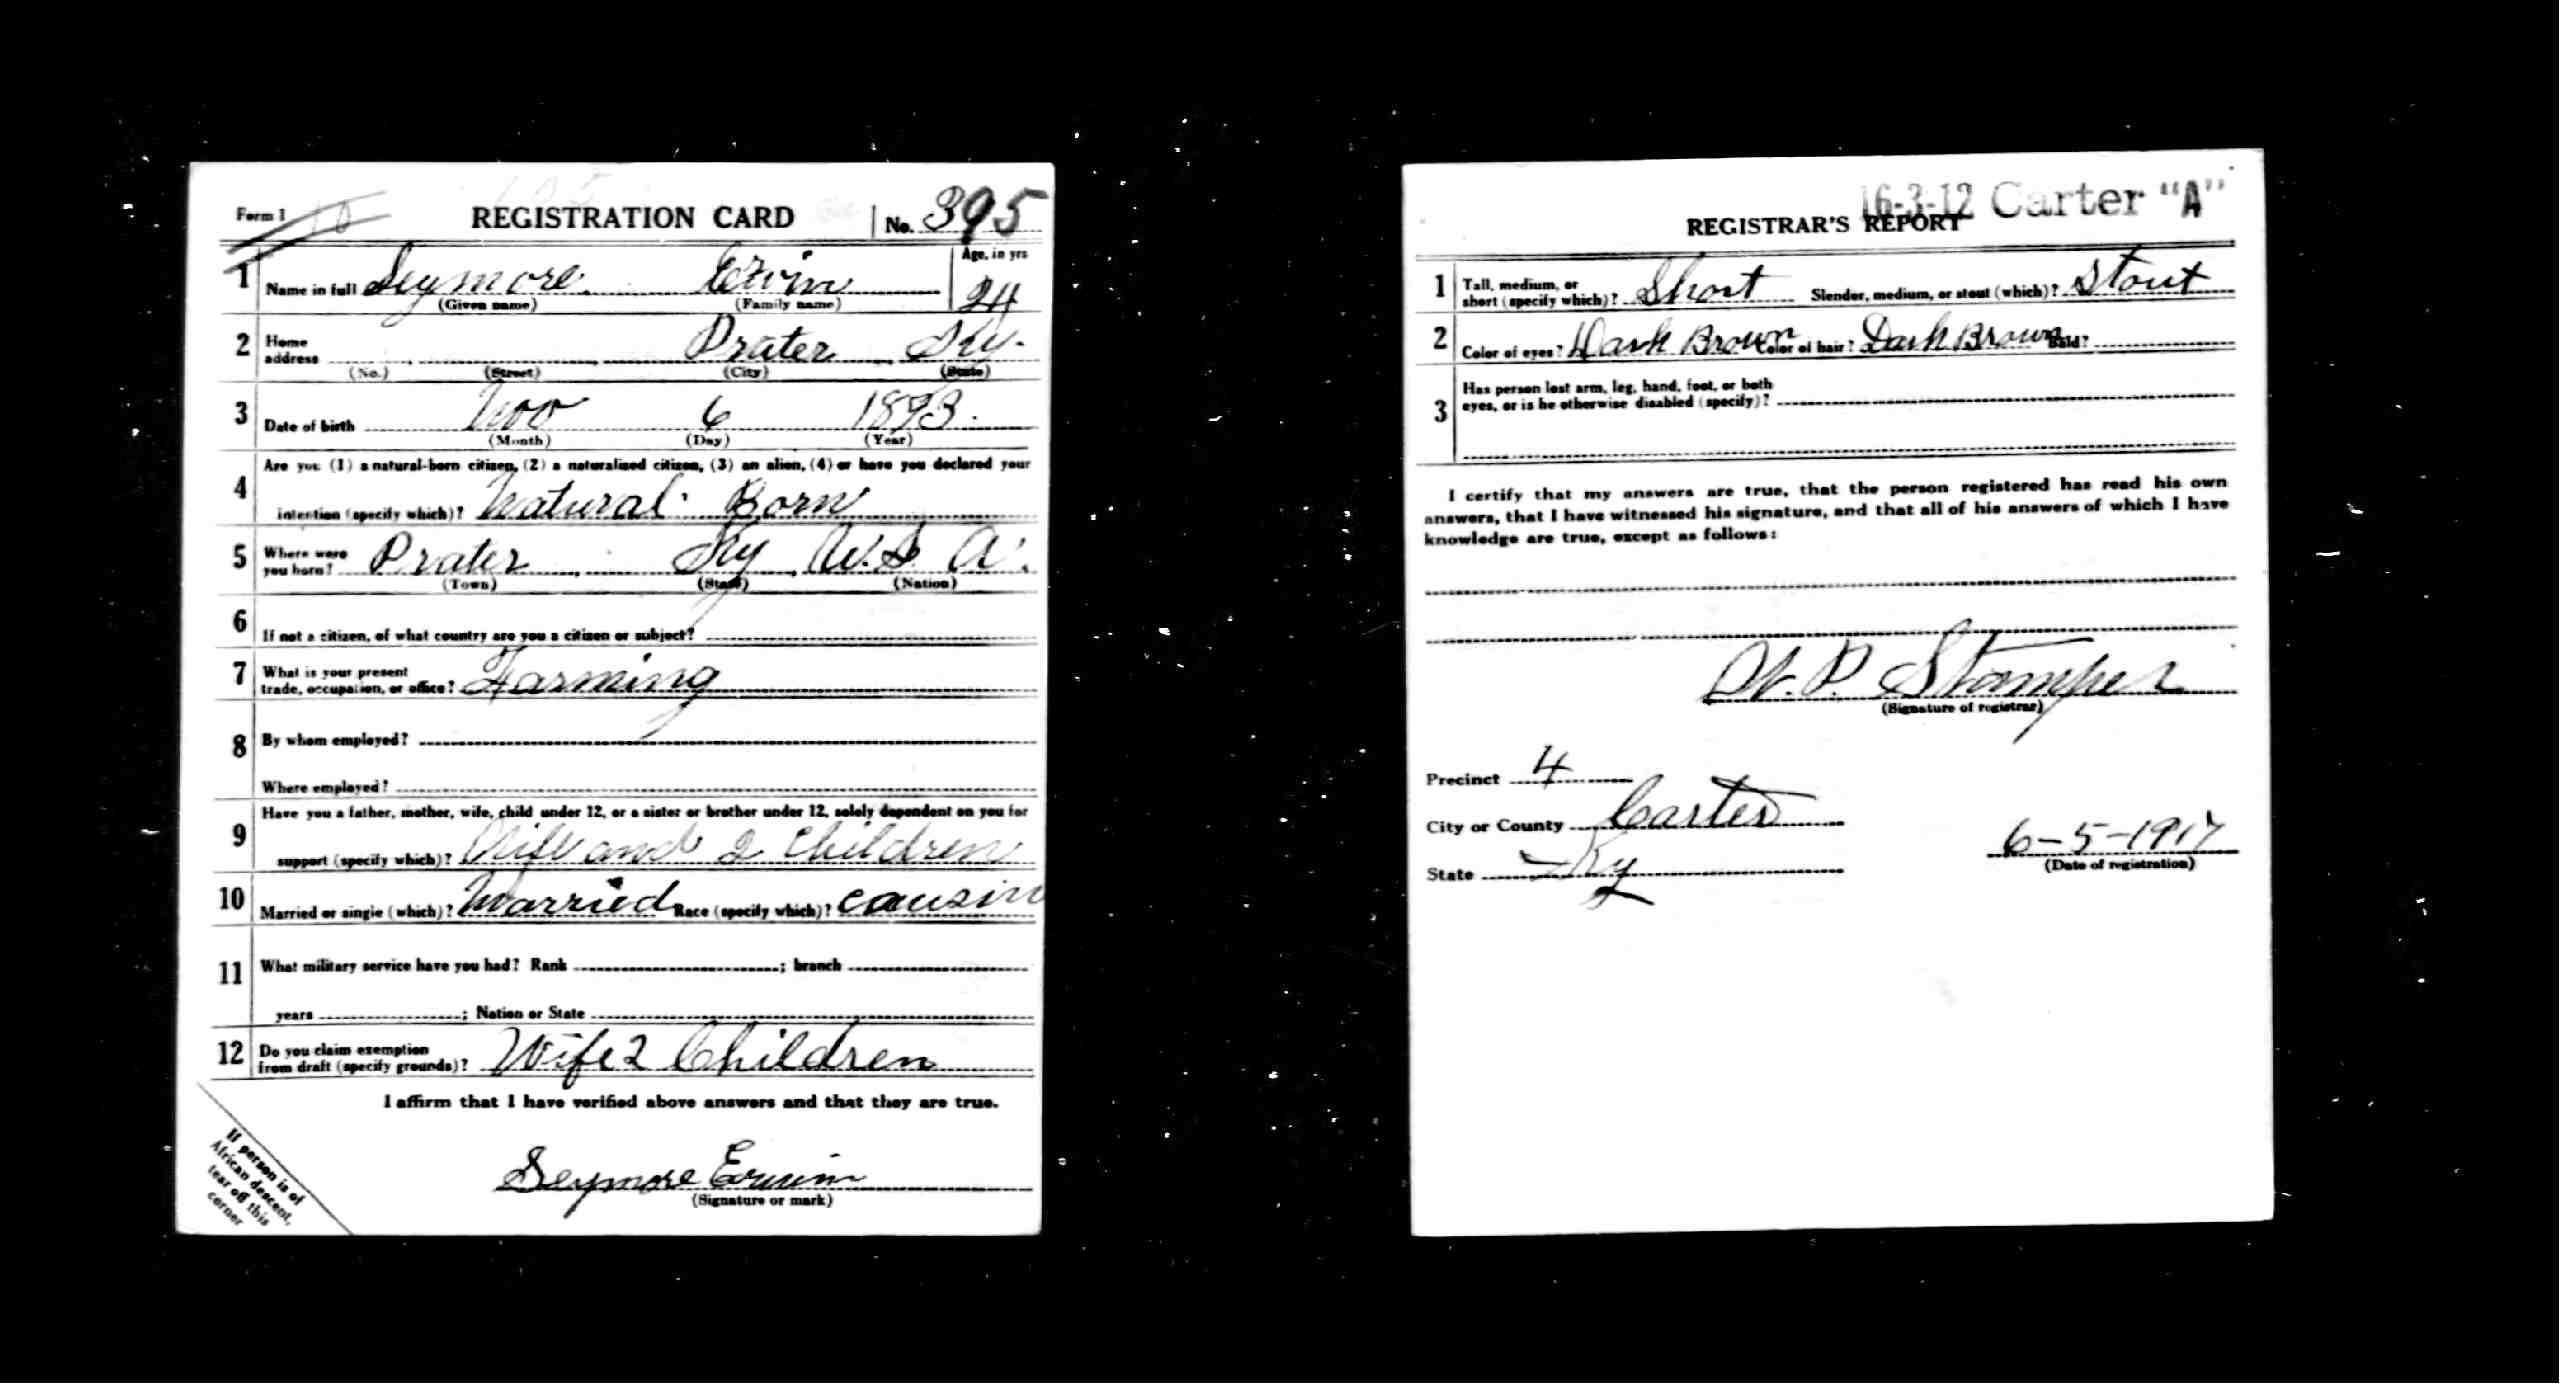 Form 1 10 REGISTRATION CARD No. 395
1 Name in full Seymore Ervin Age, in yrs 24
(Given name) (Family name)
2 Home address Prater Ky.
(No.) (Street) (City) (State)
3 Date of birth Nov 6 1893.
(Month) (Day) (Year)
4 Are you (1) a natural-born citizen, (2) a naturalized citizen, (3) an alien, (4) or have you declared your
intention (specify which)? Natural Born
5 Where were you born? Prater Ky U.S.A.
(Town) (State) (Nation)
6 If not a citizen, of what country are you a citizen or subject?
7 What is your present
trade, occupation, or office? Farming
8 By whom employed?
Where employed?
9 Have you a father, mother, wife, child under 12, or a sister or brother under 12, solely dependent on you for
support (specify which)? Wife and 2 Children
10 Married or single (which)? Married Race (specify which)? causin
11 What military service have you had? Rank ; branch
years ; Nation or State
12 Do you claim exemption
from draft (specify grounds)? Wife 2 Children
I affirm that I have verified above answers and that they are true.
Seymore Erwin
(Signature or mark)
If person is of
African descent,
tear off this
corner
16-3-12 Carter "A"
REGISTRAR'S REPORT
1 Tall, medium, or
short (specify which)? Short Slender, medium, or stout (which)? Stout
2 Color of eyes? Dark Brown Color of hair? Dark Brown Bald?
3 Has person lost arm, leg, hand, foot, or both
eyes, or is he otherwise disabled (specify)?
I certify that my answers are true, that the person registered has read his own
answers, that I have witnessed his signature, and that all of his answers of which I have
knowledge are true, except as follows:
W. P. Stamper
(Signature of registrar)
Precinct 4
City or County Carter
State Ky
6-5-1917
(Date of registration)